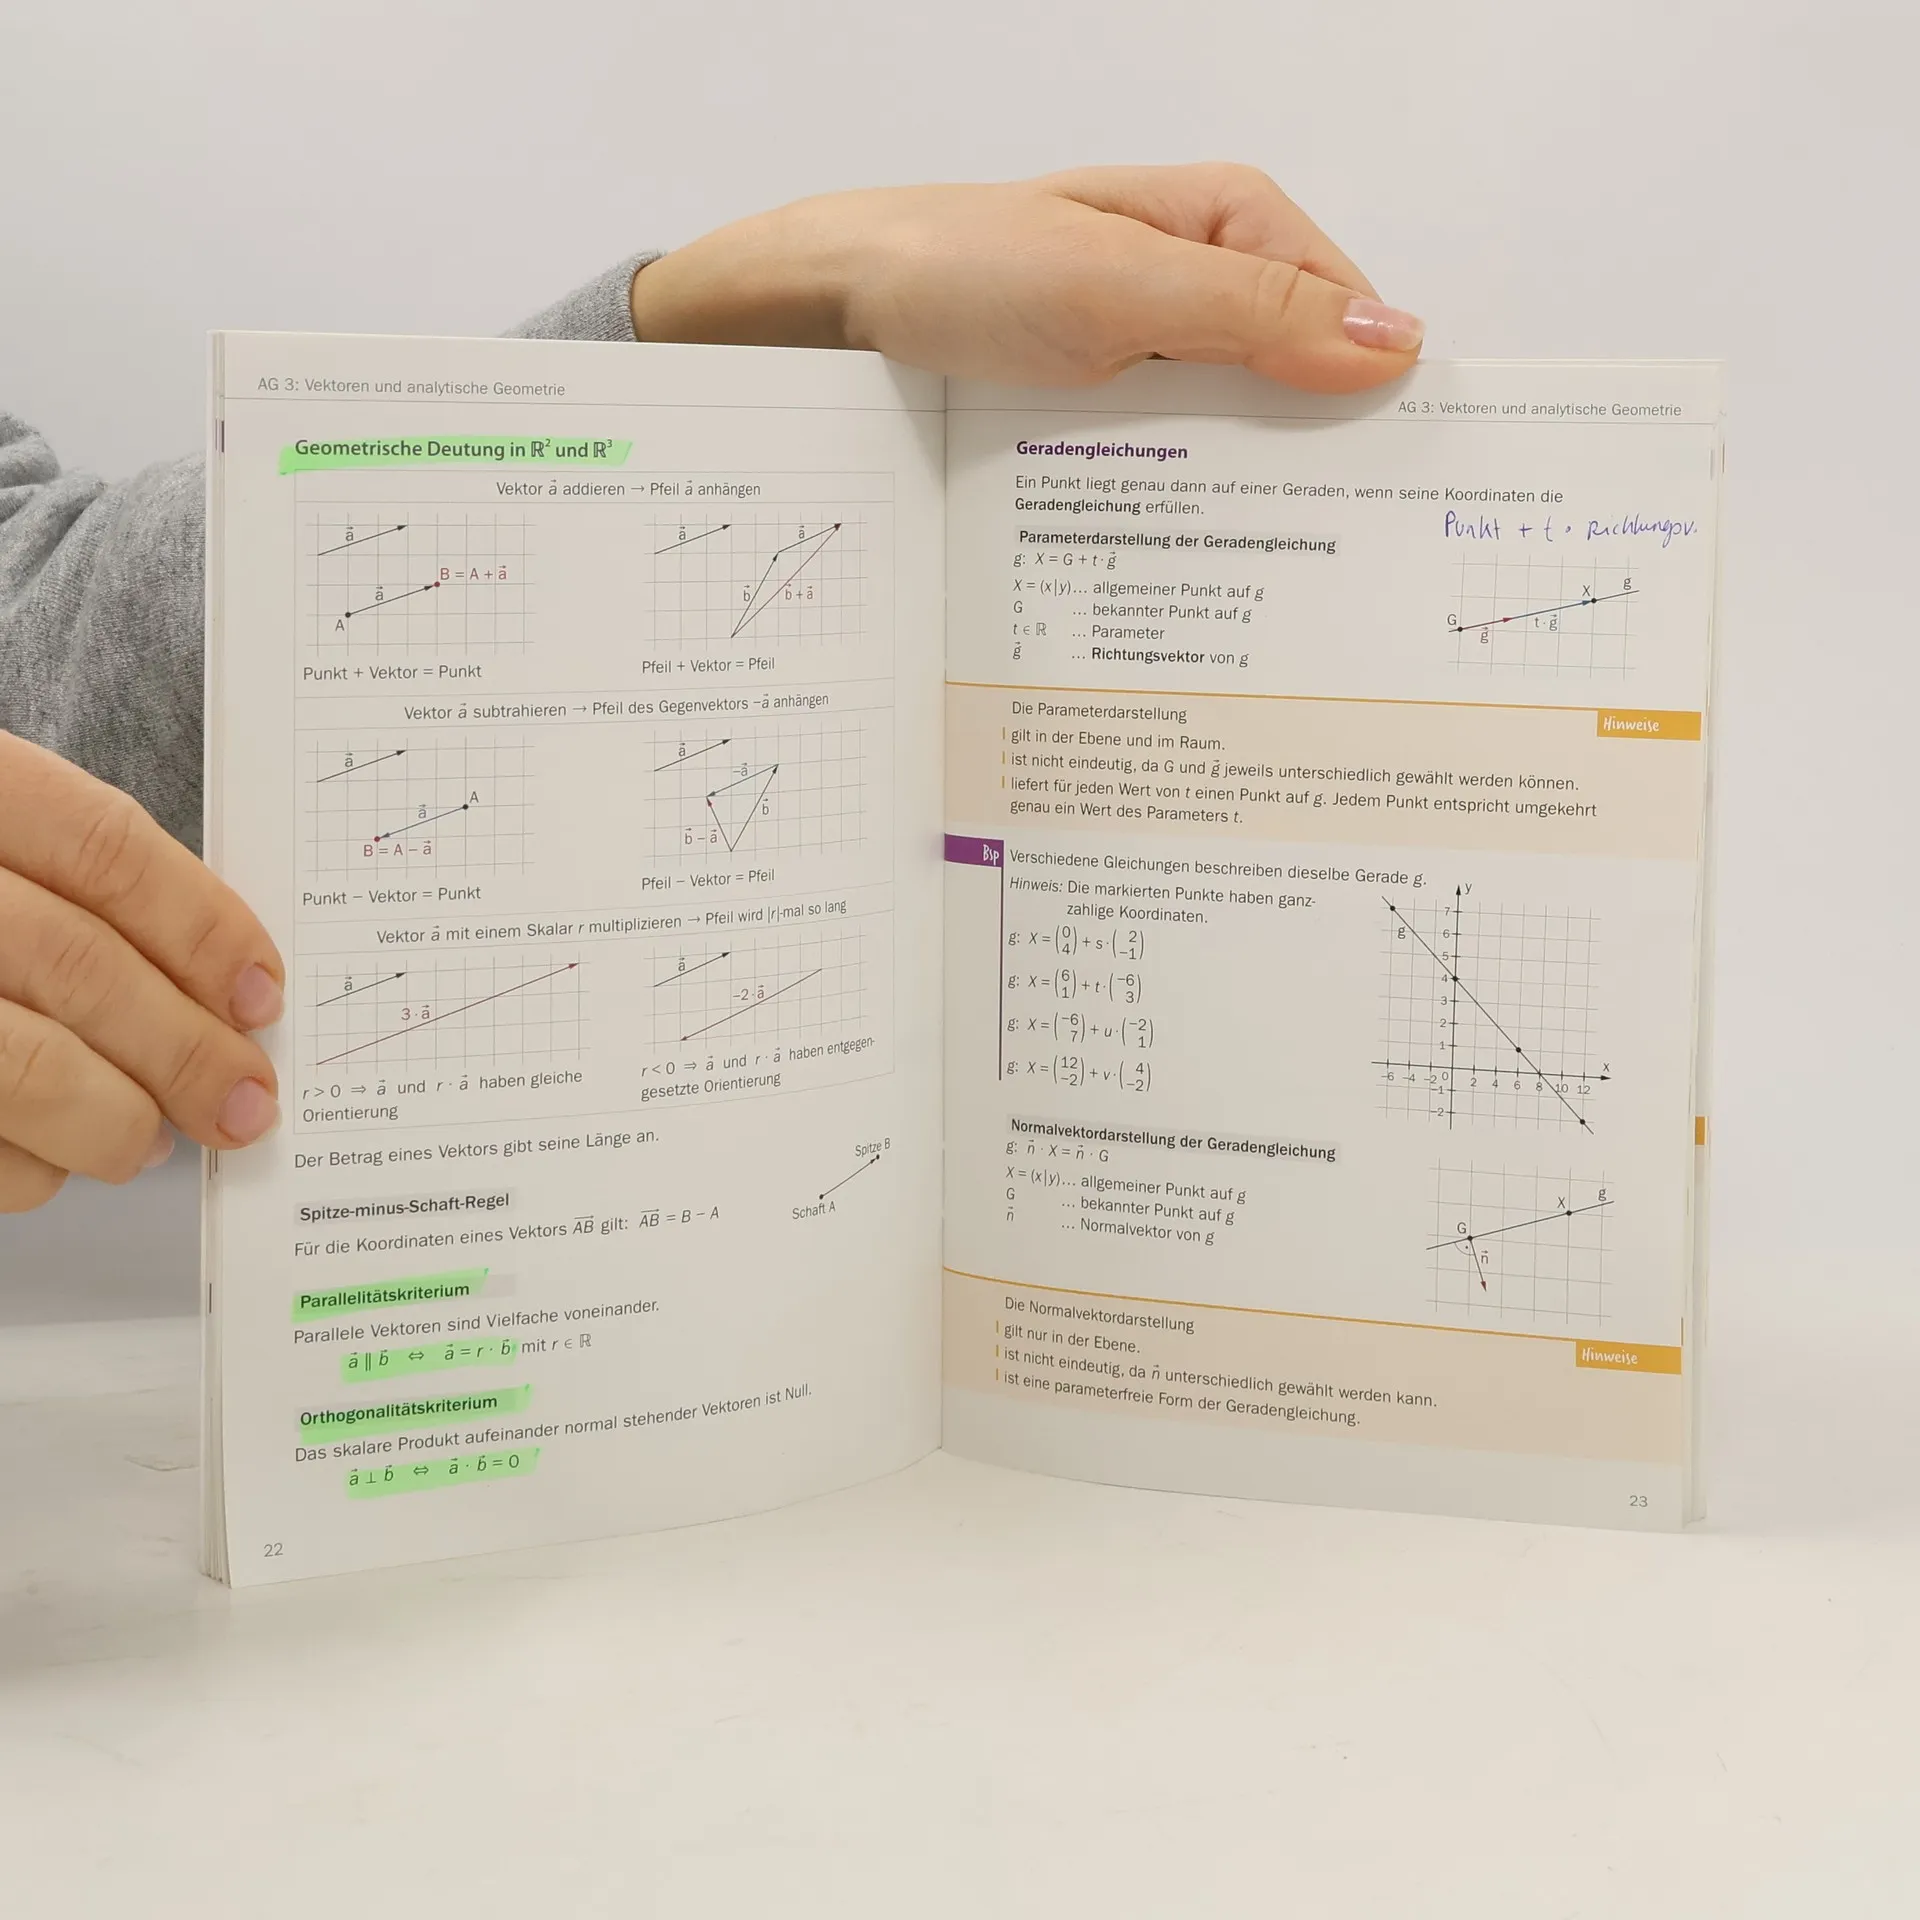 AG 3: Vektoren und analytische Geometrie
Geometrische Deutung in ℝ² und ℝ³
Vektor a⃗ addieren → Pfeil a⃗ anhängen
a⃗
a⃗
A
B = A + a⃗
Punkt + Vektor = Punkt
a⃗
a⃗
b⃗
b⃗ + a⃗
Pfeil + Vektor = Pfeil
Vektor a⃗ subtrahieren → Pfeil des Gegenvektors −a⃗ anhängen
a⃗
A
a⃗
B = A − a⃗
Punkt − Vektor = Punkt
a⃗
−a⃗
b⃗
b⃗ − a⃗
Pfeil − Vektor = Pfeil
Vektor a⃗ mit einem Skalar r multiplizieren → Pfeil wird |r|-mal so lang
a⃗
3 · a⃗
r > 0 ⇒ a⃗ und r · a⃗ haben gleiche
Orientierung
a⃗
−2 · a⃗
r < 0 ⇒ a⃗ und r · a⃗ haben entgegen-
gesetzte Orientierung
Der Betrag eines Vektors gibt seine Länge an.
Spitze B
Schaft A
Spitze-minus-Schaft-Regel
Für die Koordinaten eines Vektors A͞B⃗ gilt: A͞B⃗ = B − A
Parallelitätskriterium
Parallele Vektoren sind Vielfache voneinander.
a⃗ ∥ b⃗ ⇔ a⃗ = r · b⃗ mit r ∈ ℝ
Orthogonalitätskriterium
Das skalare Produkt aufeinander normal stehender Vektoren ist Null.
a⃗ ⊥ b⃗ ⇔ a⃗ · b⃗ = 0
22
AG 3: Vektoren und analytische Geometrie
Geradengleichungen
Ein Punkt liegt genau dann auf einer Geraden, wenn seine Koordinaten die
Geradengleichung erfüllen.
Punkt + t · Richtungsv.
Parameterdarstellung der Geradengleichung
g: X = G + t · g⃗
X = (x|y)... allgemeiner Punkt auf g
G ... bekannter Punkt auf g
t ∈ ℝ ... Parameter
g⃗ ... Richtungsvektor von g
G
g⃗
t · g⃗
X
g
Hinweise
Die Parameterdarstellung
gilt in der Ebene und im Raum.
ist nicht eindeutig, da G und g⃗ jeweils unterschiedlich gewählt werden können.
liefert für jeden Wert von t einen Punkt auf g. Jedem Punkt entspricht umgekehrt
genau ein Wert des Parameters t.
Bsp
Verschiedene Gleichungen beschreiben dieselbe Gerade g.
Hinweis: Die markierten Punkte haben ganz-
zahlige Koordinaten.
g: X = (0 4) + s · (2 −1)
g: X = (6 1) + t · (−6 3)
g: X = (−6 7) + u · (−2 1)
g: X = (12 −2) + v · (4 −2)
y
7
6
5
4
3
2
1
−1
−2
g
x
−6 −4 −2 0 2 4 6 8 10 12
Normalvektordarstellung der Geradengleichung
g: n⃗ · X = n⃗ · G
X = (x|y)... allgemeiner Punkt auf g
G ... bekannter Punkt auf g
n⃗ ... Normalvektor von g
G
n⃗
X
g
Hinweise
Die Normalvektordarstellung
gilt nur in der Ebene.
ist nicht eindeutig, da n⃗ unterschiedlich gewählt werden kann.
ist eine parameterfreie Form der Geradengleichung.
23